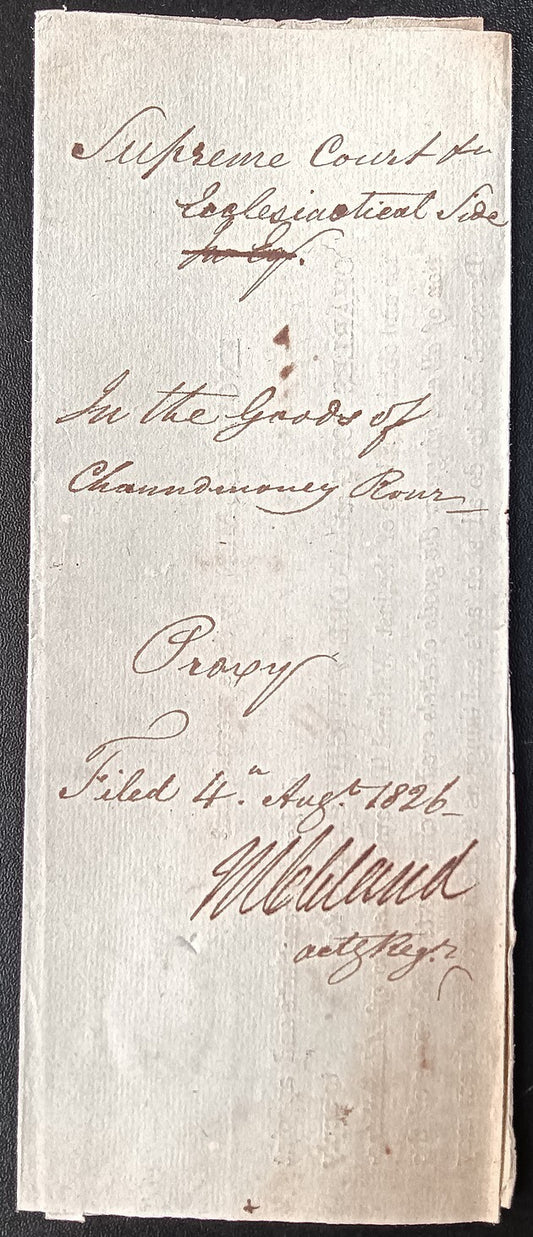 Supreme Court &c
Ecclesiastical Side
In Eq.
In the Goods of
Chaundmoney Rour
Proxy
Filed 4.th Aug.t 1826
actg Reg.r